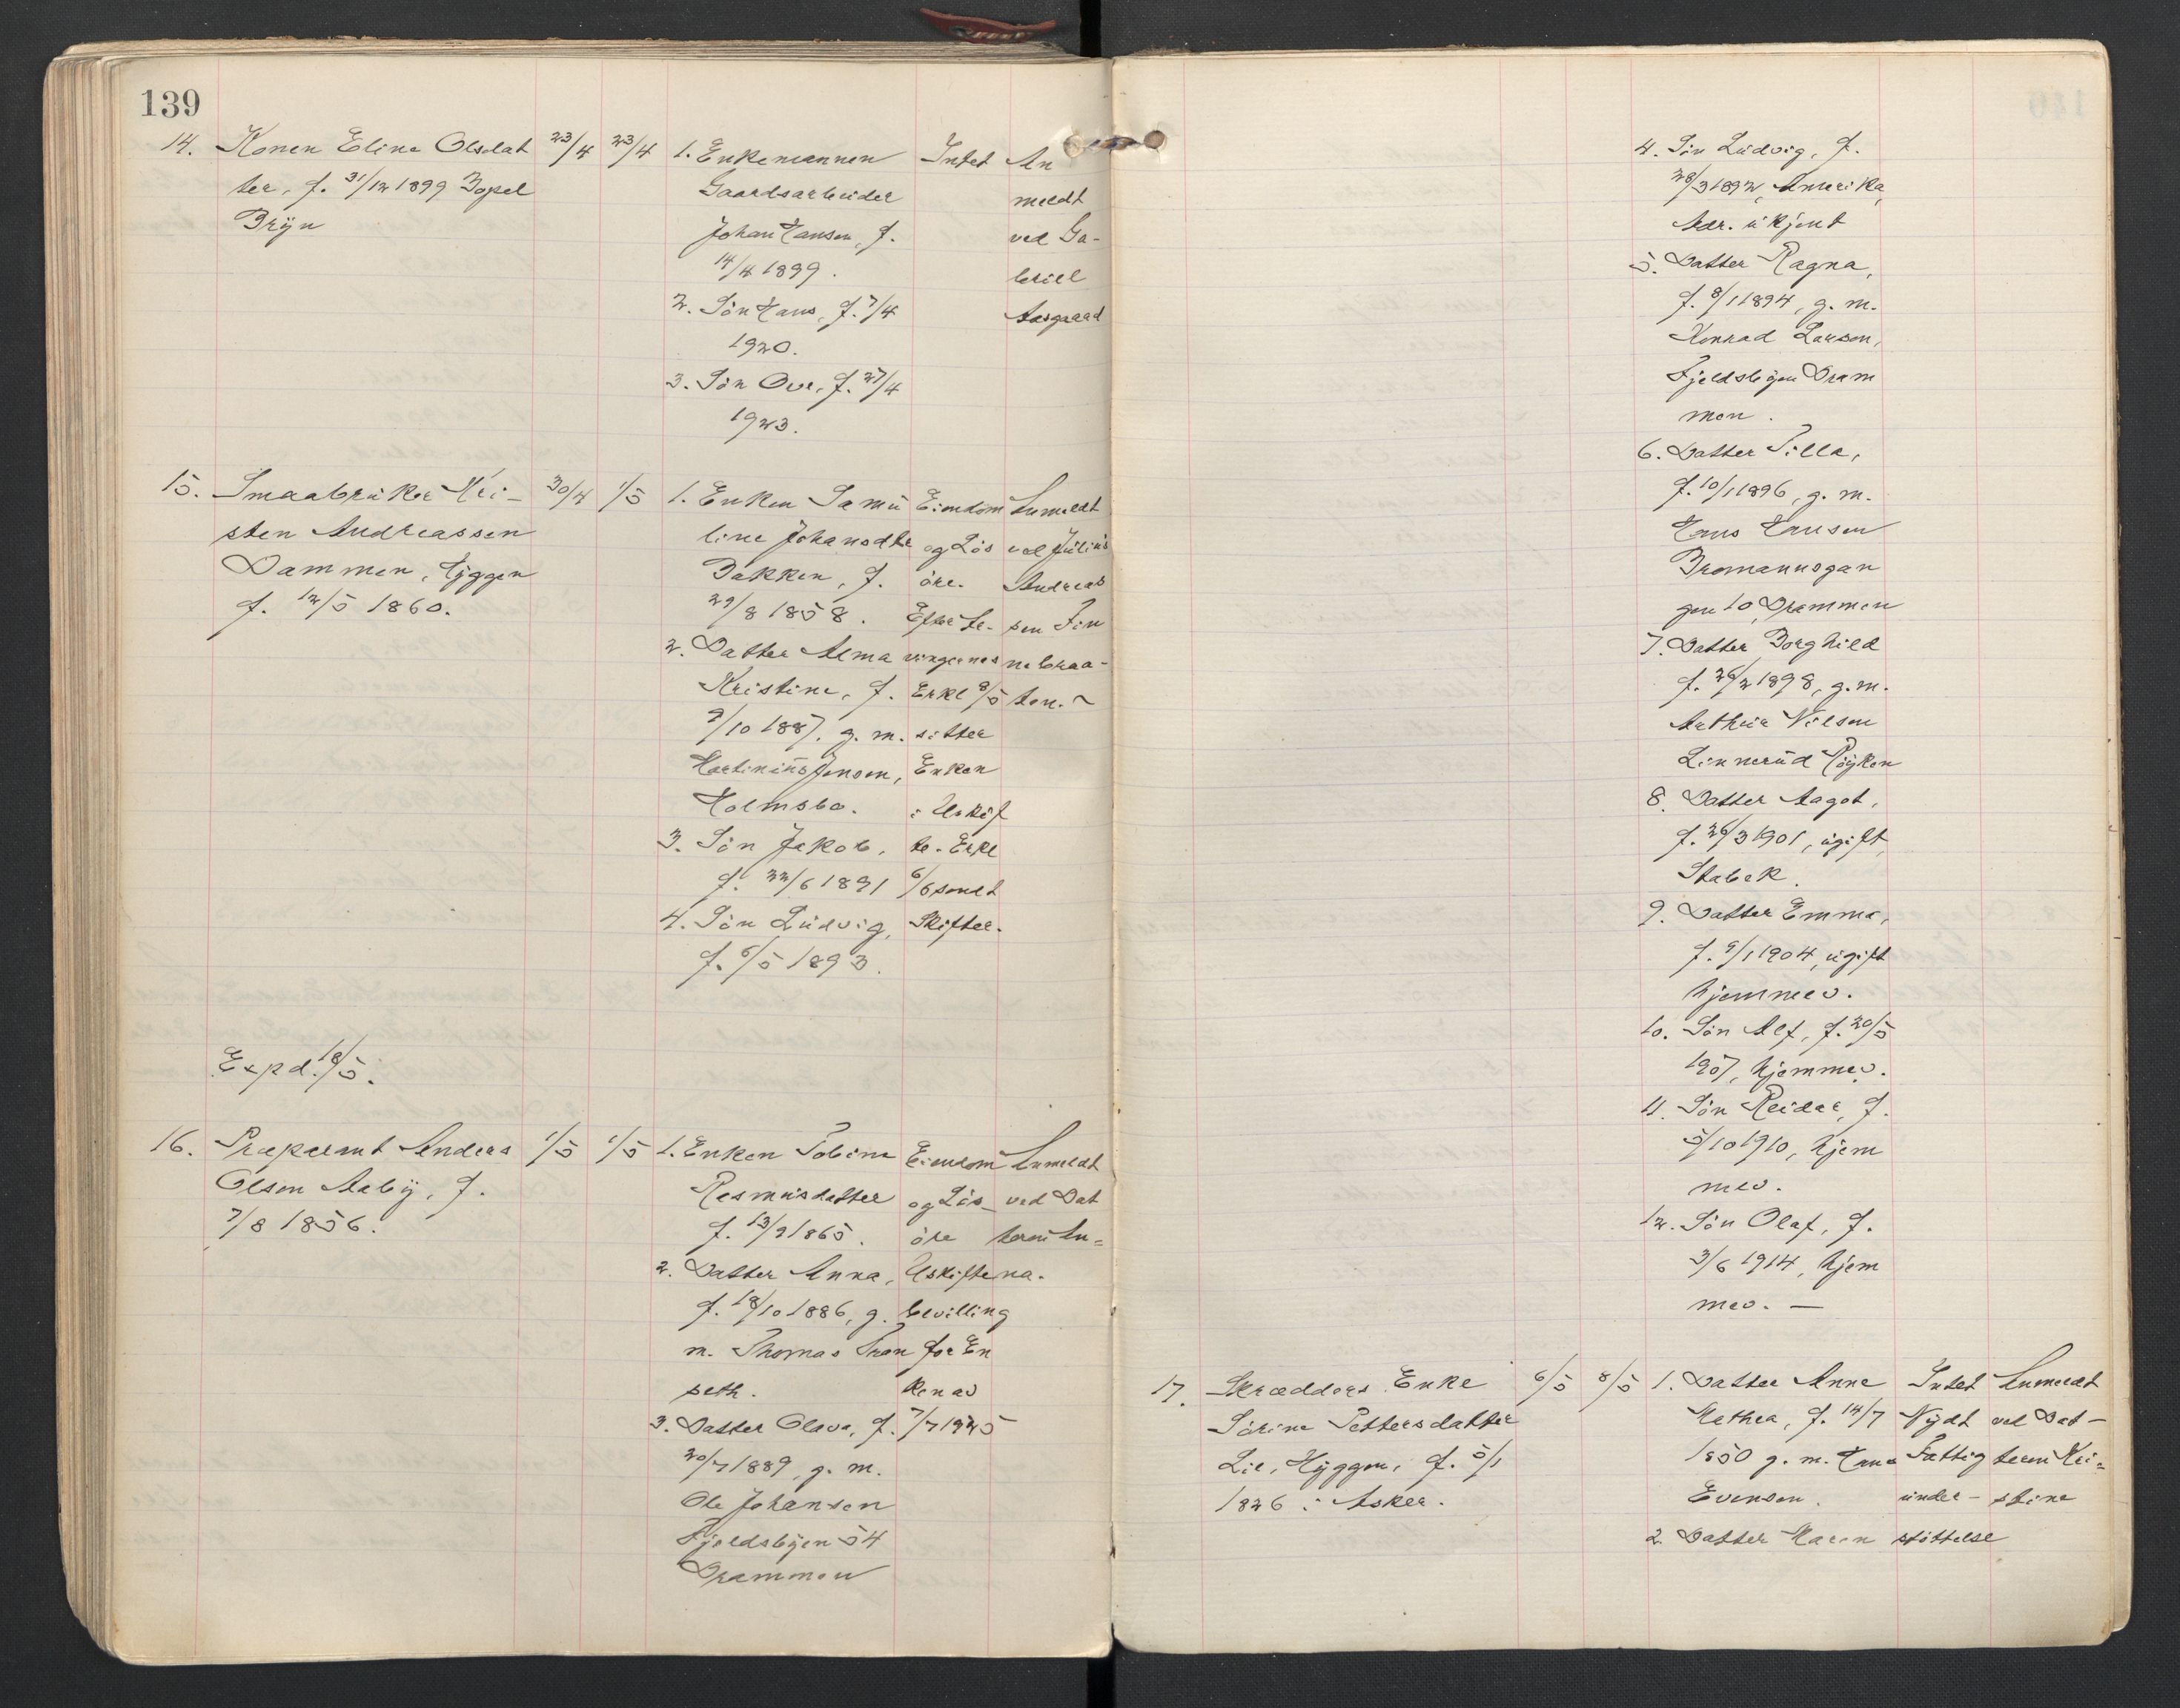 139
14. Konen Eline Olsdat
ter, f. 31/12 1899 Bopel
Brÿn
23/4 23/4
1. Enkemannen
Gaardsarbeider
Johan Hansen, f.
14/4 1899.
2. Sön Hans, f. 7/4
1920.
3. Sön Ove, f. 27/4
1923.
Intet
An
meldt
ved Ga-
briel
Aasgaard
15. Smaabrüker Kri-
sten Andreassen
Dammen, Hÿggen
f. 12/5 1860.
30/4 1/5
1. Enken Samü
line Johansdtr
Bakken, f.
29/8 1858.
2. Datter Alma
Kristine, f.
9/10 1887. g. m.
Martiniüs Jensen,
Holmsbo.
3. Sön Jakob,
f. 22/6 1891
4. Sön Lüdvig,
f. 6/5 1893.
Eiendom
og Lös
öre.
Efter Ar-
vingernes
Erkl 8/5
sitter
Enken
i Uskif
te. Erkl
6/6 sendt
Skifter.
Anmeldt
ved Jüliüs
Andreas
sen Fin
nebraa-
ten. ~
Expd. 18/5.
16. Præparant Anders
Olsen Aabÿ, f.
7/8 1856.
1/5 1/5
1. Enken Tobine
Rasmüsdatter
f. 13/9 1865.
2. Datter Anna,
f. 18/10 1886, g.
m. Thomas Tran
peth.
3. Datter Olava, f.
20/7 1889, g. m.
Ole Johansen
Fjeldsbÿen 54
Drammen
Eiendom
og Lös_
öre
Uskifte
bevilling
for En
ken av
7/7 1925
Anmeldt
ved Dat
teren An=
na.
4. Sön Lüdvig, f.
28/3 1892, Amerika,
Adr. ükjent
5. Datter Ragna,
f. 8/1 1894, g. m.
Konrad Larsen,
Fjeldsbÿen Dram
men.
6. Datter Tilla,
f. 10/1 1896, g. m.
Hans Hansen
Bromannsgan
gen 10, Drammen
7. Datter Borghild
f. 26/2 1898, g. m.
Arthür Nilsen
Linnerüd Röÿken
8. Datter Aagot,
f. 26/3 1901, ügift,
Stabek.
9. Datter Emma,
f. 9/1 1904, ügift
hjemmev.
10. Sön Alf, f. 20/5
1907, hjemmev.
11. Sön Reidar, f.
5/10 1910, hjem
mev.
12. Sön Olaf, f.
3/6 1914, hjem
mev. —
17. Skrædders Enke
Sörine Pettersdatter
Lie, Hÿggen, f. 5/1
1826 i Asker.
6/5 8/5
1. Datter Anne
Mathea, f. 14/7
1850 g. m. Hans
Evensen.
2. Datter Maren
Intet
Nÿdt
Fattig
ünder-
stöttelse
Anmeldt
ved Dat-
teren Kri=
stine